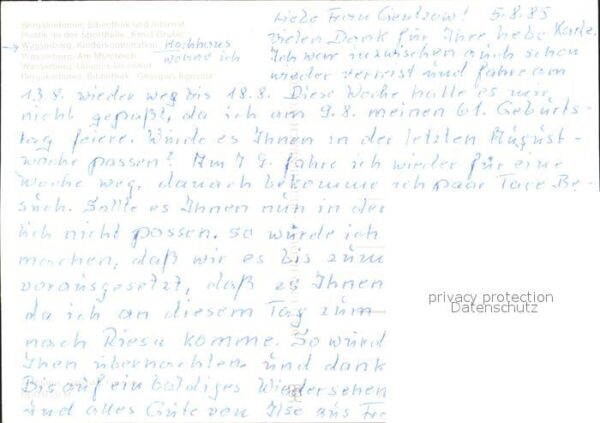 Liebe Frau Gentzow! 5.8.85
Bergakademie, Bibliothek und Internat
Plastik in der Sporthalle „Ernst Grube“
Wasserberg, Kinderkombination Hochhaus
wohne ich
Wasserberg, Am Münzteich
Wasserberg, Ledeburstraße
Bergakademie, Bibliothek „Georgius Agricola“
vielen Dank für Ihre liebe Karte.
Ich war inzwischen auch schon
wieder verreist und fahre am
13.8. wieder weg bis 18.8. Diese Woche hätte es mir
nicht gepaßt, da ich am 9.8. meinen 61. Geburts-
tag feiere. Würde es Ihnen in der letzten August-
woche passen? Am 7.9. fahre ich wieder für eine
Woche weg, danach bekomme ich paar Tage Be-
such. Sollte es Ihnen nun in der
lich nicht passen, so würde ich
machen, daß wir es bis zum
vorausgesetzt, daß es Ihnen
da ich an diesem Tag zum
nach Riesa komme. So würd
Ihnen übernachten und dank
Bis auf ein baldiges Wiedersehen
und alles Gute von Ilse aus Fre
privacy protection
Datenschutz